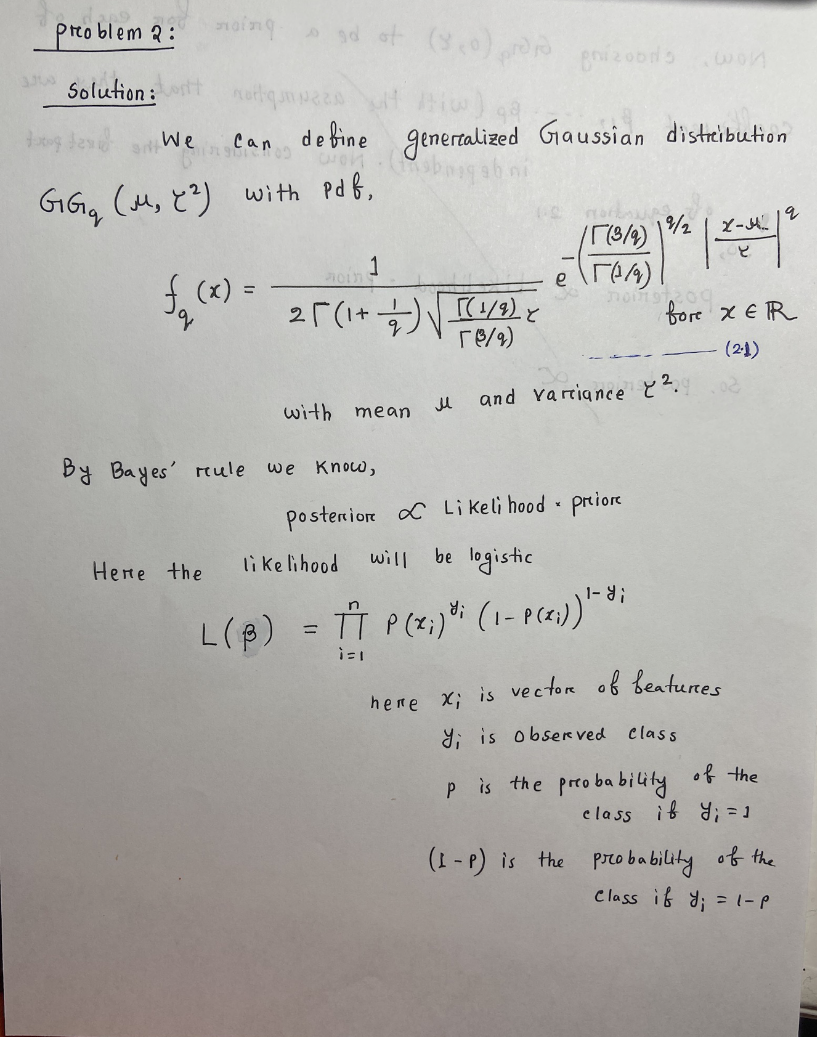 Problem 2:
Solution:
We can define generalized Gaussian distribution
GG_q (μ, τ²) with pdf,
f_q (x) = 1 / (2 Γ(1 + 1/q) √(Γ(1/q) / Γ(3/q)) τ) e^(-(Γ(3/q) / Γ(1/q))^(q/2) |(x-μ) / τ|^q) for x ∈ ℝ
(2.1)
with mean μ and variance τ².
By Bayes' rule we know,
posterior ∝ Likelihood × prior
Here the likelihood will be logistic
L(β) = ∏_{i=1}^{n} P(x_i)^{y_i} (1 - P(x_i))^{1-y_i}
here x_i is vector of features
y_i is observed class
p is the probability of the
class if y_i = 1
(1-p) is the probability of the
class if y_i = 1-p